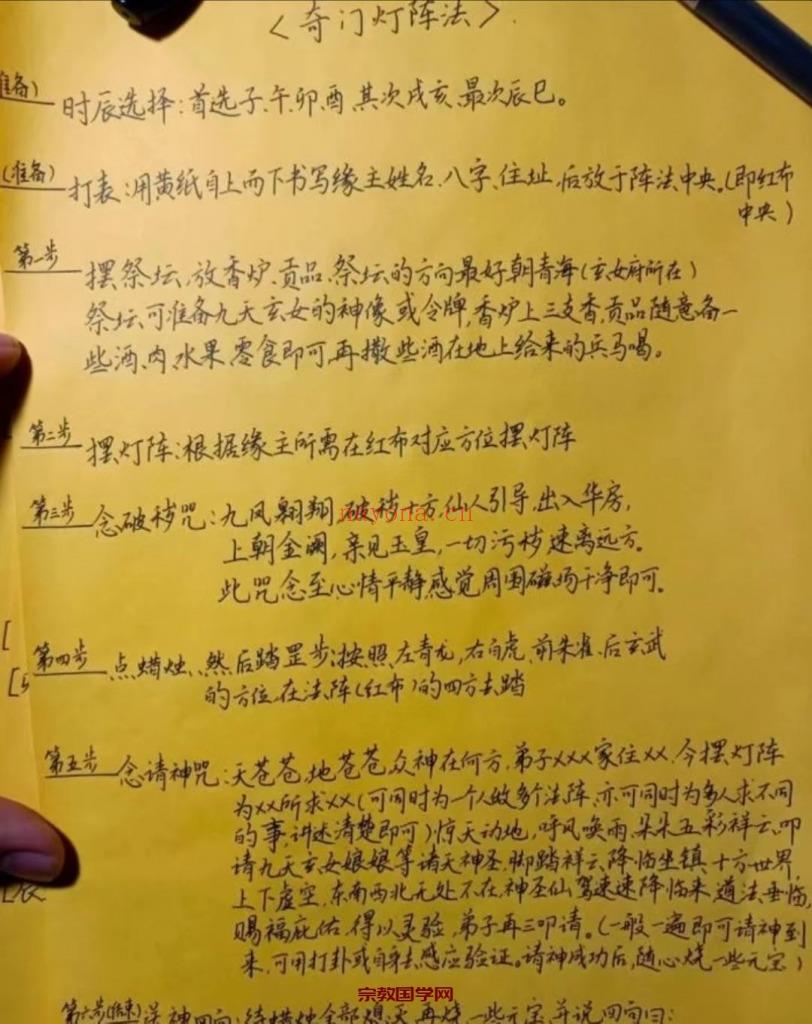 <奇门灯阵法>.
准备)
时辰选择:首选子、午、卯、酉,其次戌亥、最次辰巳。
(准备)
打表:用黄纸自上而下书写缘主姓名、八字、住址,后放于阵法中央。(即红布
中央)
第一步
摆祭坛,放香炉、贡品,祭坛的方向最好朝青海(玄女府所在)
祭坛可准备九天玄女的神像或令牌,香炉上三支香,贡品随意备一
些酒、肉、水果、零食即可,再撒些酒在地上给来的兵马喝。
第二步
摆灯阵:根据缘主所需在红布对应方位摆灯阵
第三步
念破秽咒:九凤翱翔,破秽十方,仙人引导,出入华房,
上朝金阙,亲见玉皇,一切污秽速离远方。
此咒念至心情平静,感觉周围磁场干净即可。
[
[
第四步
点蜡烛、然后踏罡步:按照左青龙,右白虎、前朱雀、后玄武
的方位,在法阵(红布)的四方去踏
第五步
念请神咒:天苍苍,地苍苍,众神在何方,弟子xxx家住xx,今摆灯阵
为xx所求xx(可同时为一个人做多个法阵,亦可同时为多人求不同
的事,讲述清楚即可)惊天动地,呼风唤雨,朵朵五彩祥云,叩
请九天玄女娘娘等诸天神圣,脚踏祥云,降临坐镇,十方世界,
上下虚空,东南西北无处不在,神圣仙驾速速降临来,道法垂临,
赐福庇佑,得以灵验,弟子再三叩请。(一般一遍即可请神到
来,可用打卦或自身去感应验证。请神成功后,随心烧一些元宝)
第六步(结束)
送神回向:待蜡烛全部熄灭,再烧一些元宝,并说回向曰:
nayona.cn
宗教国学网